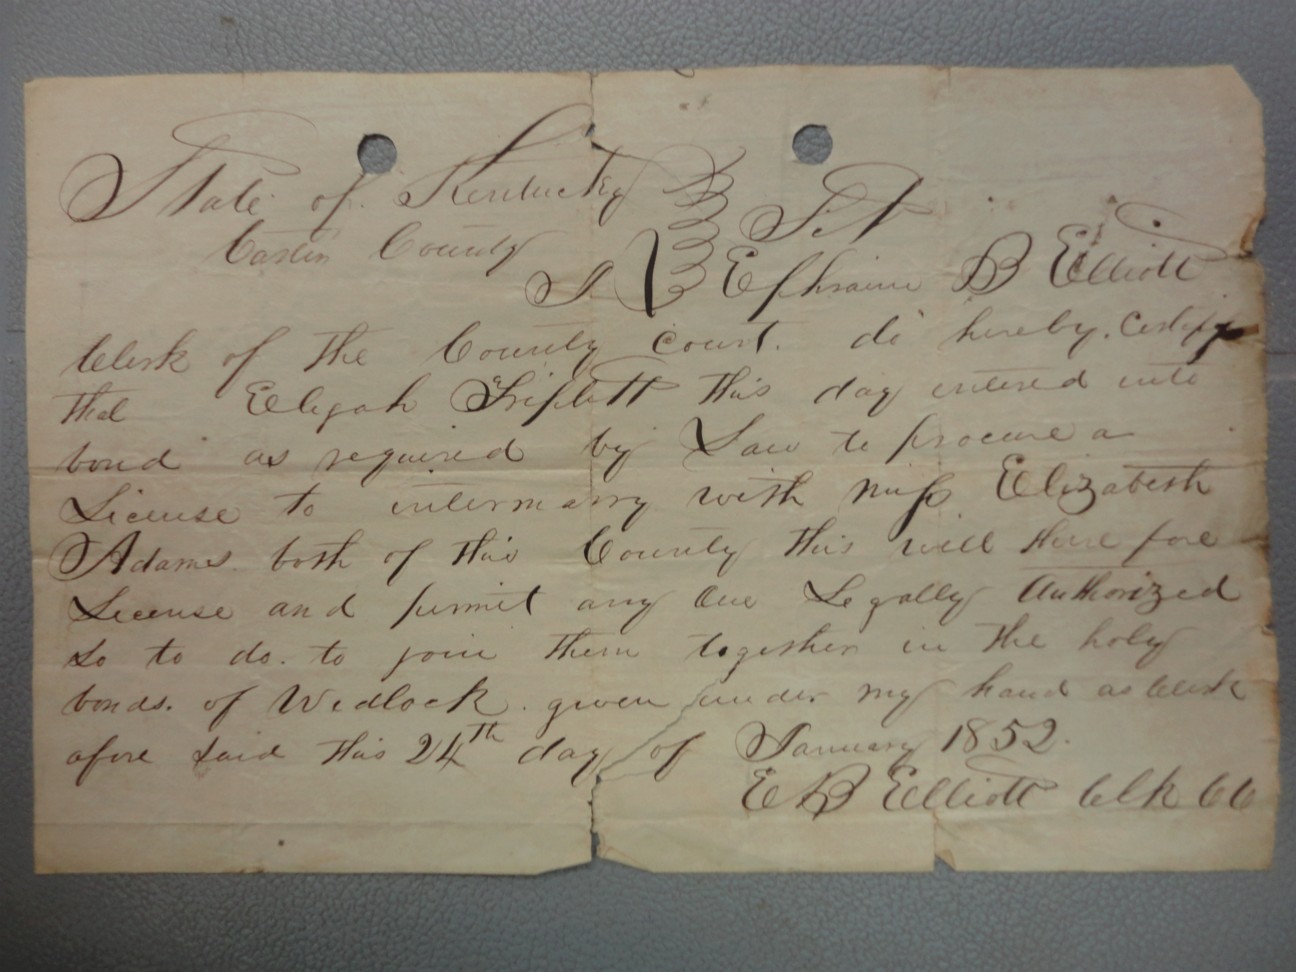 State of Kentucky
Carter County Sct
I Ephraim B Elliott
Clerk of the County Court. do hereby. Certify
that Elijah Triplett this day entered into
bond as required by Law to procure a
License to intermarry with miss Elizabeth
Adams. both of this County this will there fore
License and permit any One Legally Authorized
so to do. to join them together in the holy
bonds. of Wedlock. given under my hand as Clerk
afore said this 24th day of January 1852.
E B Elliott Clk CC